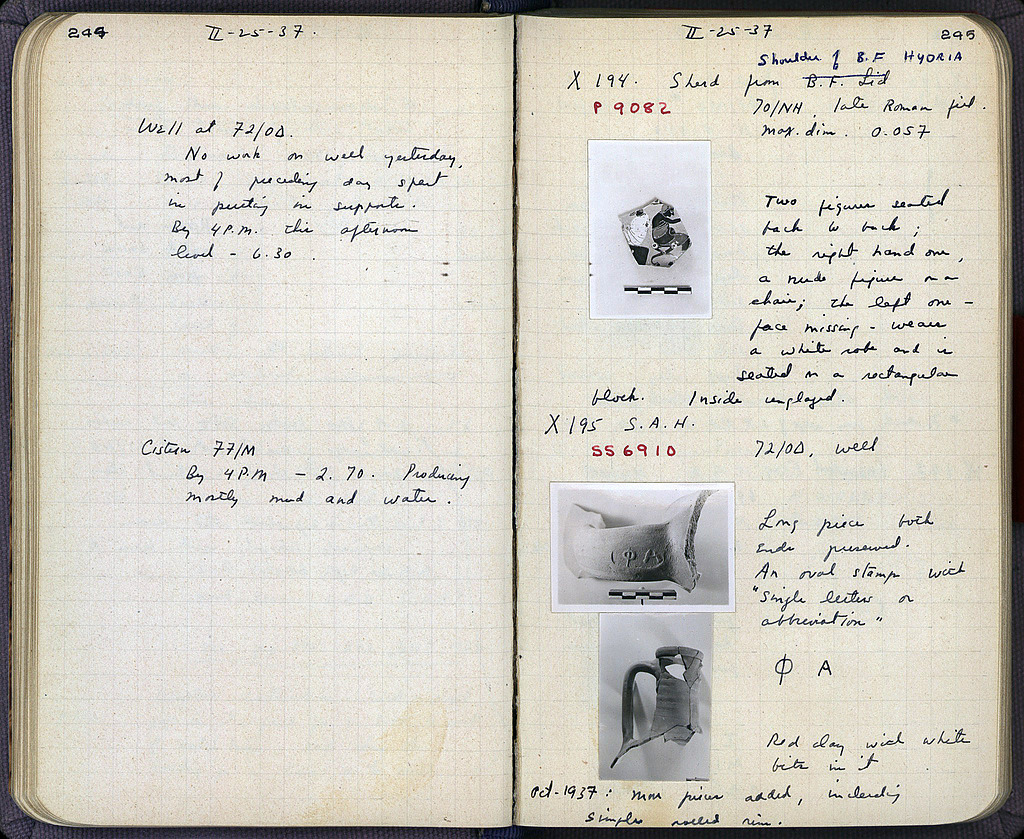 244
II-25-37.
Well at 72/OΔ.
No work on well yesterday,
most of preceding day spent
in putting in supports.
By 4 P.M. this afternoon
level - 6.30.
Cistern 77/M
By 4 P.M - 2.70. Producing
mostly mud and water.
II-25-37
245
Shoulder of B.F HYDRIA
X 194. Sherd from B.F. Lid
P 9082
70/NH, late Roman fill.
Max. dim. 0.057
Two figures seated
back to back;
the right hand one,
a nude figure on a
chair; the left one -
face missing - wears
a white robe and is
seated on a rectangular
block. Inside unglazed.
X 195 S.A.H.
SS 6910
72/OΔ, well
Long piece both
Ends preserved.
An oval stamp with
"Single letters or
abbreviation"
Φ A
Red clay with white
bits in it
Oct-1937: more pieces added, including
simple rolled rim.